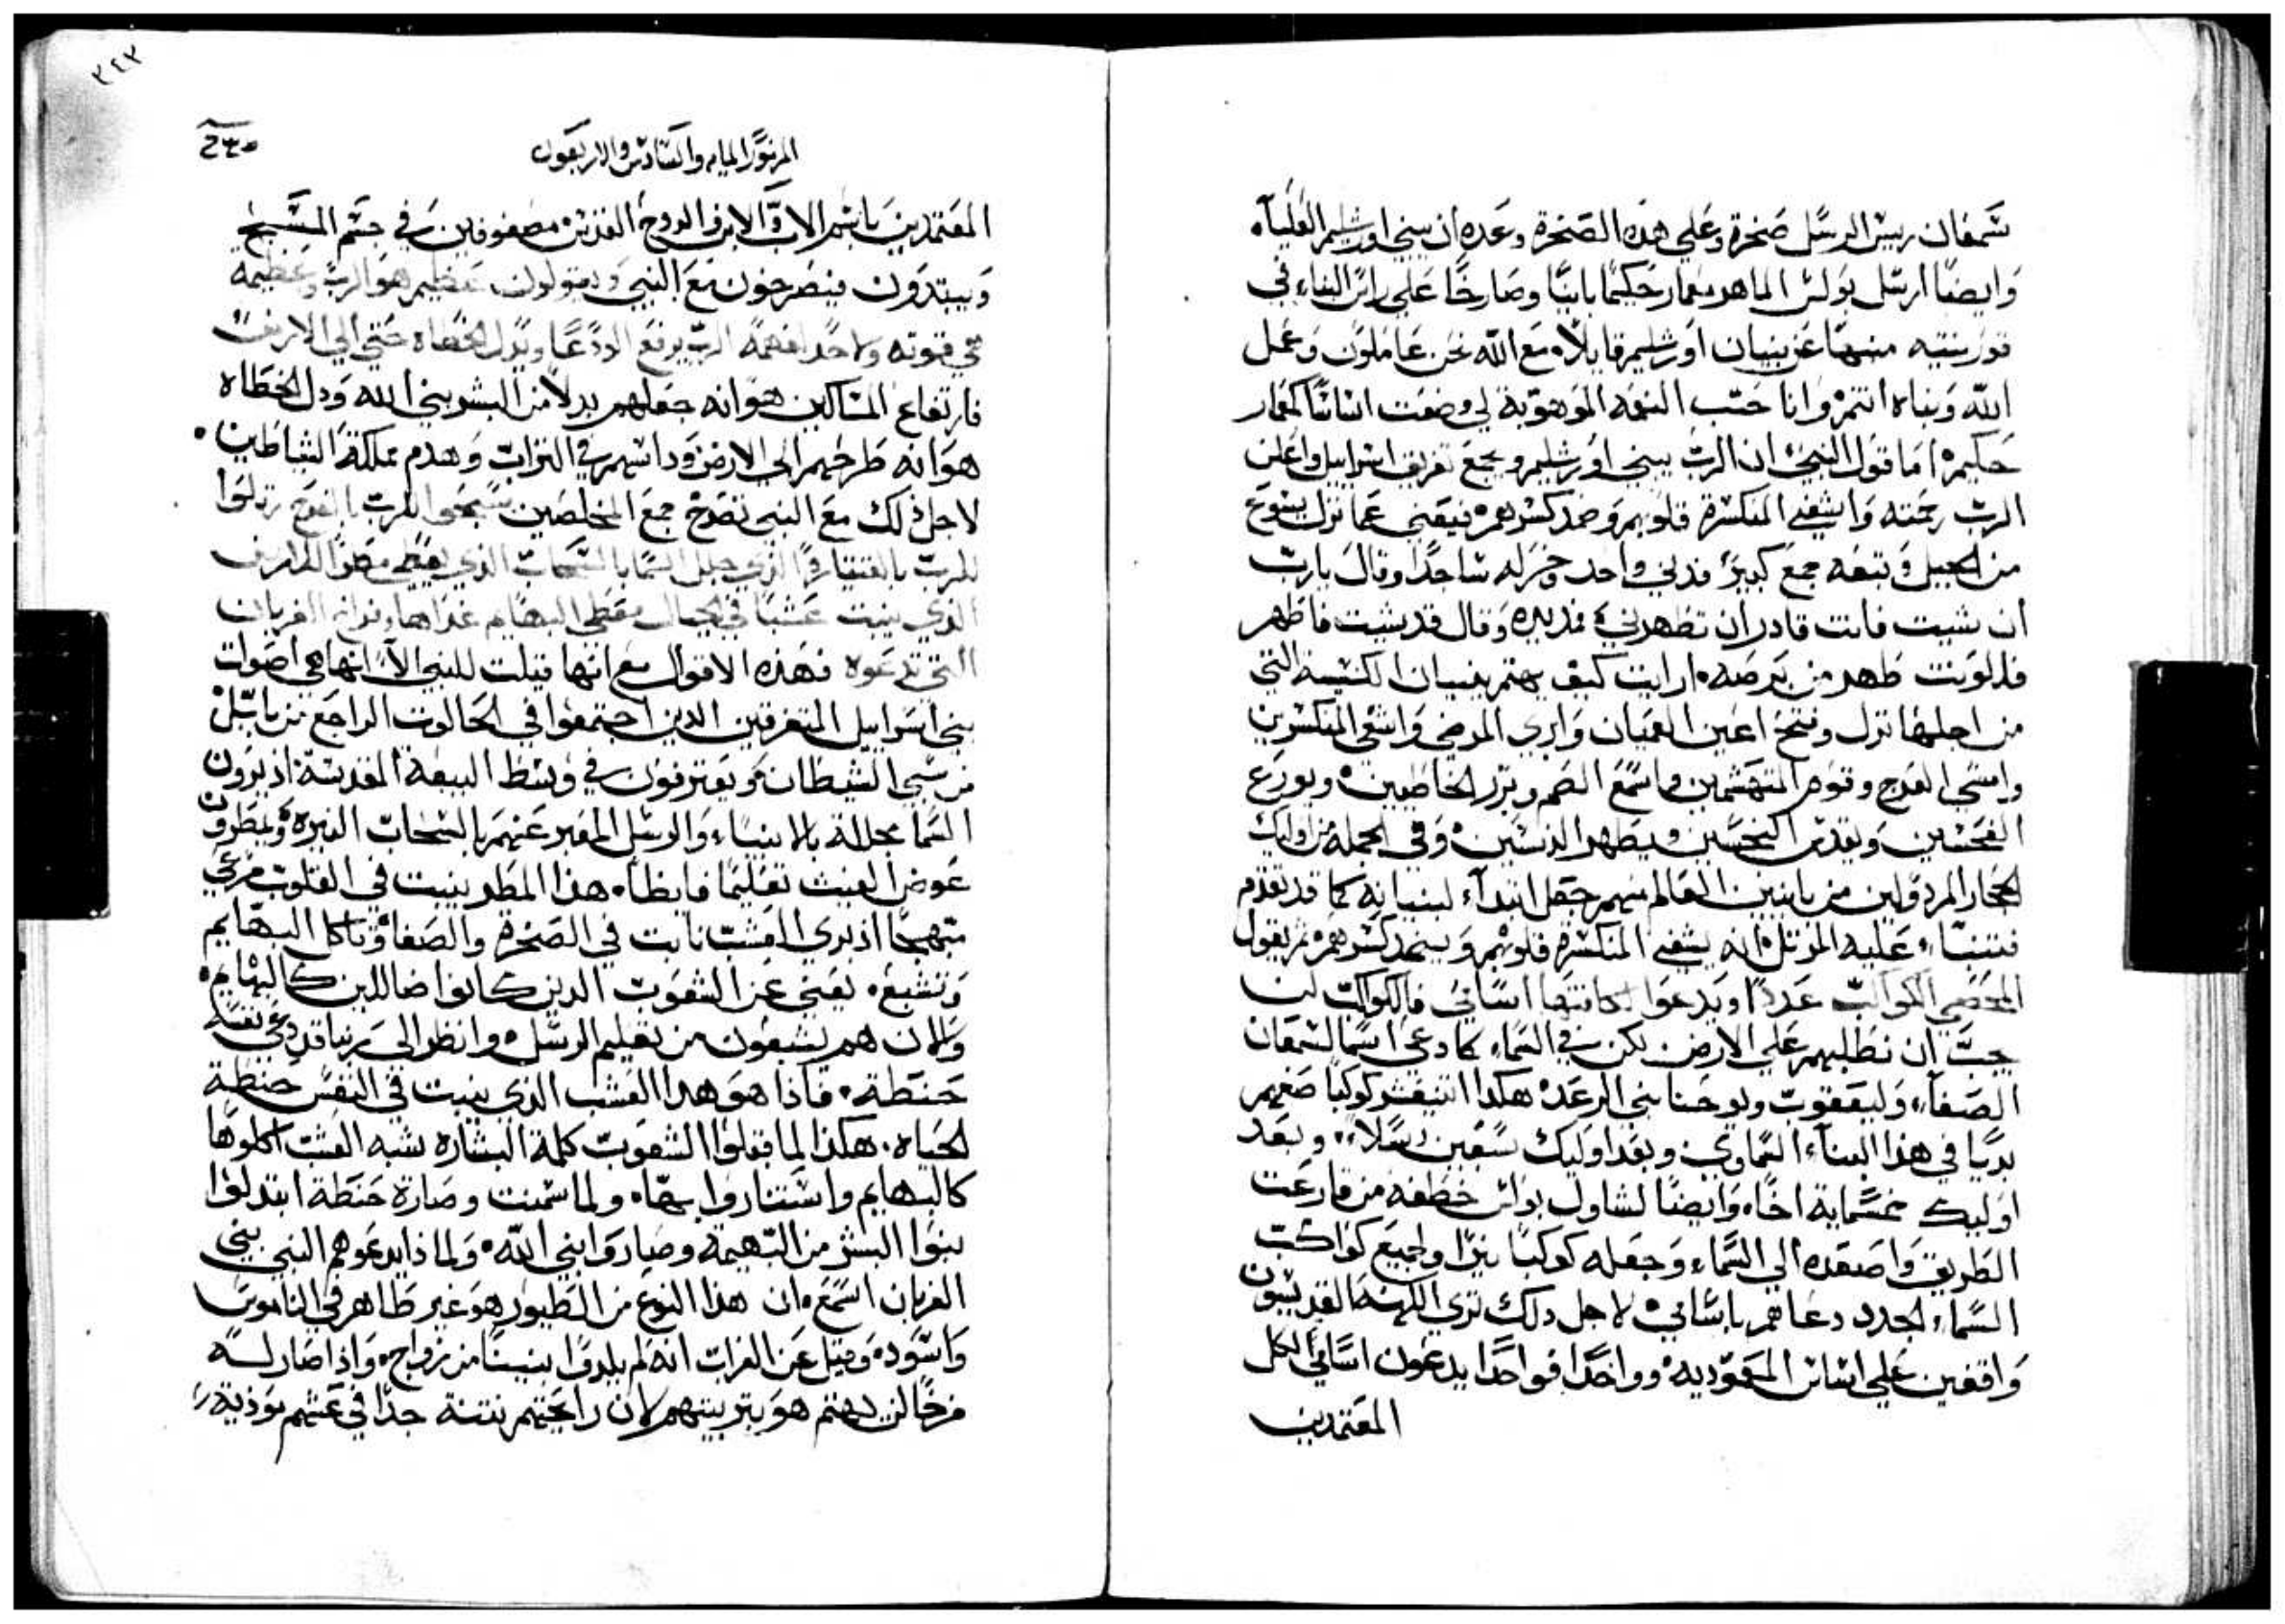 شمعان رييس الرسل صخرة وعلي هذه الصخرة وعده ان يبني اورشليم العلياء
وايضا ارسل بولس الماهر معمار حكيما بانيا وصارخا علي راس البناء في
قورنتيه منبها عن بنيان اورشليم قايلا مع الله نحن عاملون وعمل
الله وبناه انتم وانا حسب النعمه الموهوبة لي وضعت اساسا كمعمار
حكيم اما قول النبي ان الرب يبني اورشليم ويجمع تفريق اسراييل واعلن
الرب رحمته واشفي المنكسرة قلوبهم وضمد كسرهم فيعني عما نزل يسوع
من الجبل وتبعه جمع كبير فدني واحد وخر له ساجدا وقال يا رب
ان شيت فانت قادر ان تطهرني فمد يده وقال قد شيت فاطهر
فللوقت طهر من برصه ارايت كيف يهتم ببنيان الكنيسة التي
من اجلها نزل وفتح اعين العميان وابري المرضي واشفي المنكسرين
وامشي العرج وقوم المتهشمين واسمع الصم وبرر الخاطيين وبورع
الفحسين وبقدس النجسين وبطهر الدنسين وفي الجمله من اوليك
الحجار المرذولين من بانيين العالم منهم جعل ابتداء لبنيانه كما قد تقدم
فتنبا عليه المرتل انه يشفي المنكسرة قلوبهم ويضمد كسرهم ثم يقول
المحصي الكواكب عددا ويدعوا لكافتها اسامي فالكواكب ليس
يجب ان نطلبهم علي الارض لكن في السماء كما دعي اسما لشمعان
الصفاء وليعقوب ويوحنا بني الرعد هكذا اثنيعشر كوكبا صغيهم
بديا في هذا البناء السماوي وبعد اوليك سبعين رسلا وبعد
اوليك خمسماية اخا وايضا لشاول بولس خطفه من قارعت
الطريق واصعده الي السماء وجعله كوكبا نيرا ولجميع كواكب
السماء الجدد دعاهم باسامي لاجل ذلك نري الكهنه القديسون
واقفين علي اساس المعموديه وواحدا فواحدا يدعون اسامي الكل
المعتمدين
٢٤٢
المزمور المايه والسادس والاربعون
المعتمدين باسم الاب والابن والروح القدس مصفوفين في جسم المسيح
ويبتدون فيصرخون مع النبي ويقولون عظيم هو الرب وعظيمه
هي قوته ولاحد لفهمه الرب يرفع الودعا ويذل الخطاه حتي الي الارض
فارتفاع المساكين هو انه جعلهم بدلا من البشر بني الله وذل الخطاه
هو انه طرحهم الي الارض وداسهم في التراب وهدم مملكة الشياطين
لاجل ذلك مع النبي تصرخ جمع المخلصين سبحوا للرب بالفرح رتلوا
للرب بالقيثارة الذي جلل السما بالسحاب الذي يعطي مطرا للارض
الذي ينبت عشبا في الجبال معطي البهايم غذاها وفراخ الغربان
التي تدعوه فهذه الاقوال مع انها قيلت للنبي الا انها هي اصوات
بني اسراييل المتفرقين الذين اجتمعوا في الحالوت الراجع من بابل
من سبي الشيطان ويعترفون في وسط البيعة المقدسة اذ يرون
السما مجللة بالانبياء والرسل المعبر عنهم بالسحاب النيرة ويمطرون
عوض الغيث تعليما فايظا هذا المطر ينبت في القلوب مرعي
متبهجا اذ يري العشب نابت في الصخرة والصفاة وتاكل البهايم
وتشبع يعني عن الشعوب الذين كانوا ضاللين كالبهايم
والان هم يشبعون من تعليم الرسل وانظر الي ربنا قد دعي نفسه
حنطة فاذا هو هذا العشب الذي ينبت في النفس حنطة
الحياه هكذا لما قبلوا الشعوب كلمة البشاره شبه العشب اكلوها
كالبهايم واستناروا بها ولما سمنت وصارة حنطة ابتدلوا
بنوا البشر من البهيمة وصاروا بني الله ولماذا يدعوهم النبي بني
الغربان اسمع ان هذا النوع من الطيور هو غير طاهر في الناموس
واسود وقيل عن الغراب انه لم يلدوا بنينا من زواج واذا صار له
فرخا لن يهتم هو بتربيتهم لان رايحتهم نتنة جدا في عشهم موذية